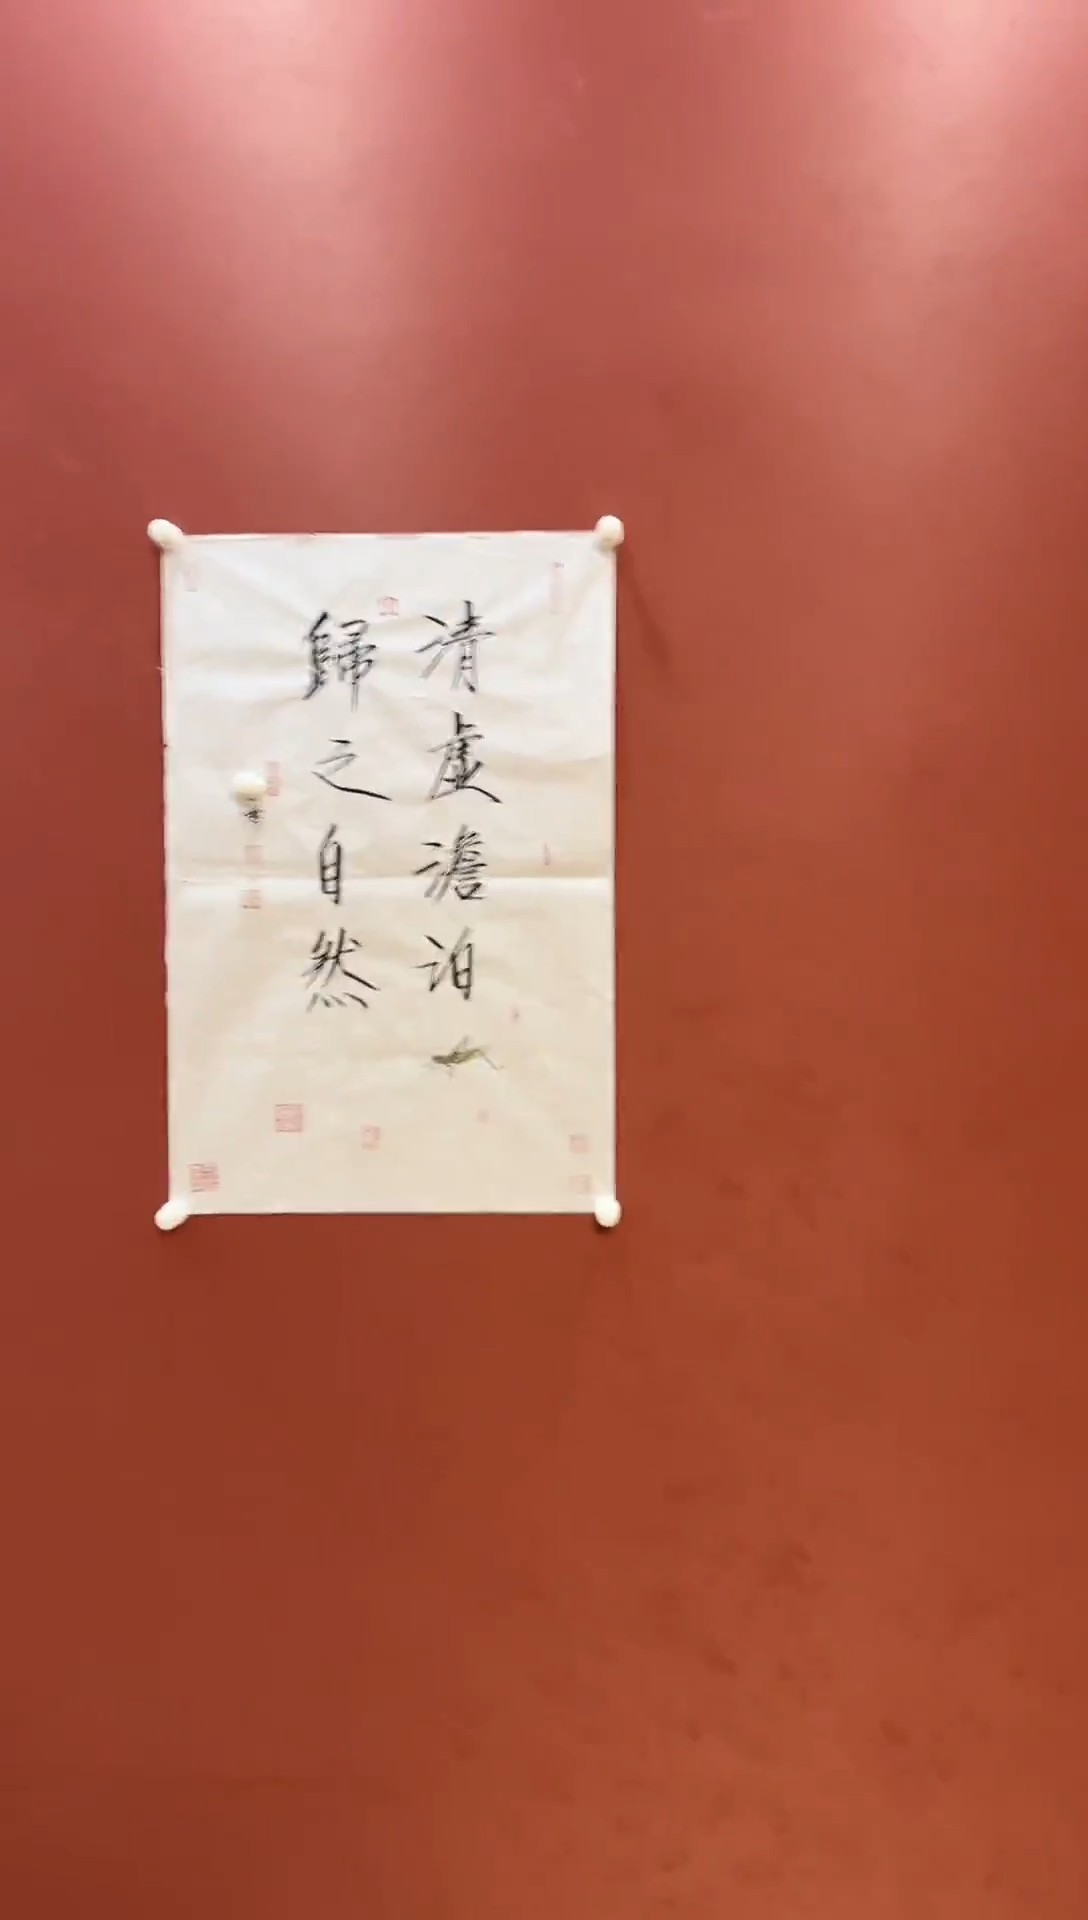 清虚澹泊
歸之自然